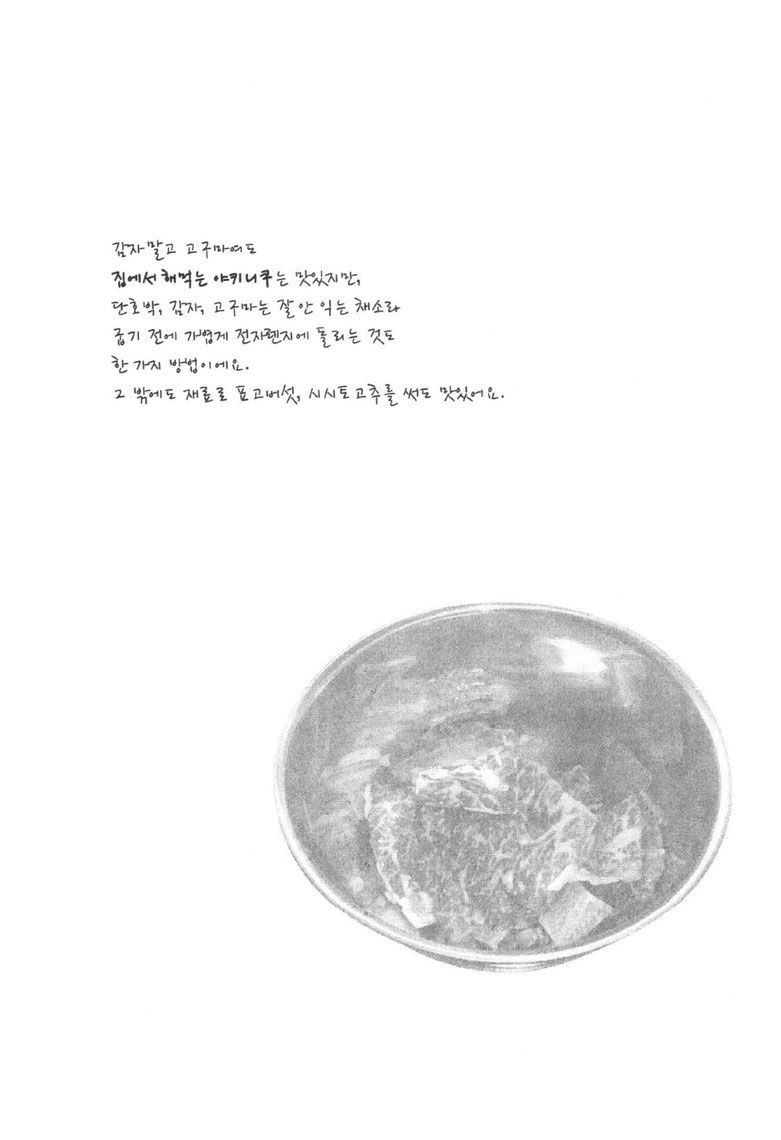 감자말고 고구마여도
집에서 해먹는 야키니쿠는 맛있지만,
단호박, 감자, 고구마는 잘 안 익는 채소라
굽기 전에 가볍게 전자렌지에 돌리는 것도
한 가지 방법이에요.
그 밖에도 재료로 표고버섯, 시시토고추를 써도 맛있어요.